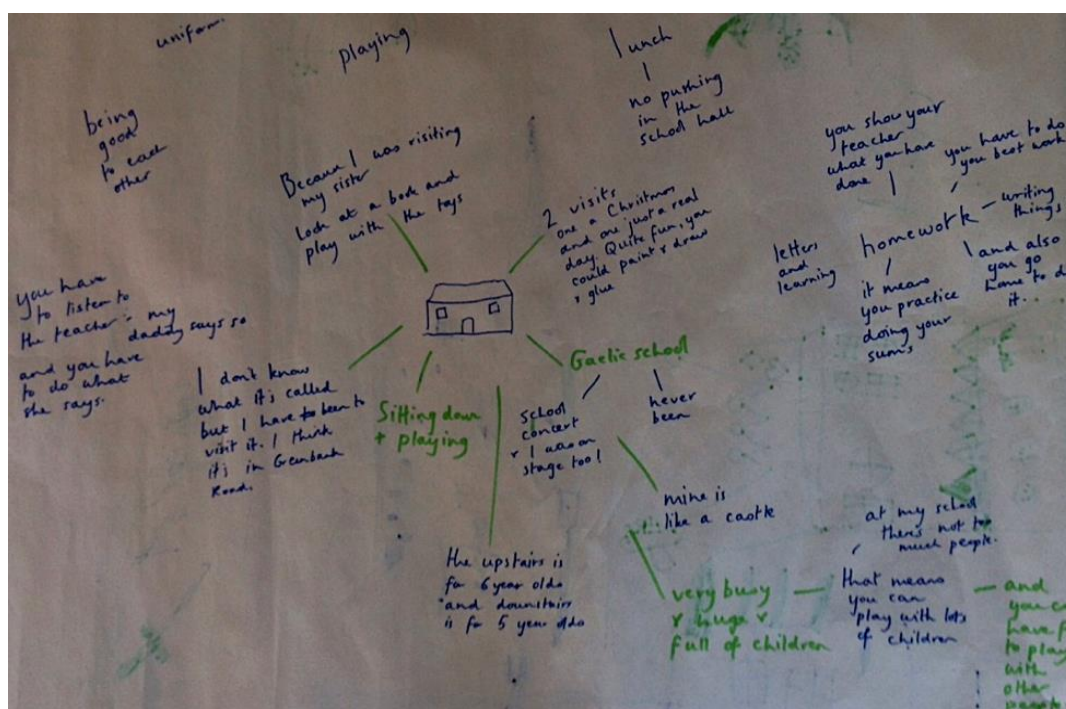 uniform
playing
lunch
no pushing
in the
school hall
being
good
to each
other
Because I was visiting
my sister
Look at a book and
play with the toys
2 visits
one a Christmas
and one just a real
day. Quite fun, you
could paint & draw
& glue
you show your
teacher
what you have
done
you have to do
you best work
homework
writing
things
letters
and
learning
it means
you practice
doing your
sums
and also
you go
home to do
it.
you have
to listen to
the teacher - my
daddy says so
and you have
to do what
she says.
I don't know
what it's called
but I have to been to
visit it. I think
it's in Greenbank
Road.
Sitting down
+ playing
Gaelic school
school
concert
& I was on
stage too!
never
been
mine is
like a castle
the upstairs is
for 6 year olds
and downstairs
is for 5 year olds
very busy
& huge &
full of children
at my school
there's not too
much people.
that means
you can
play with lots
of children
and
you
have
to play
with
other